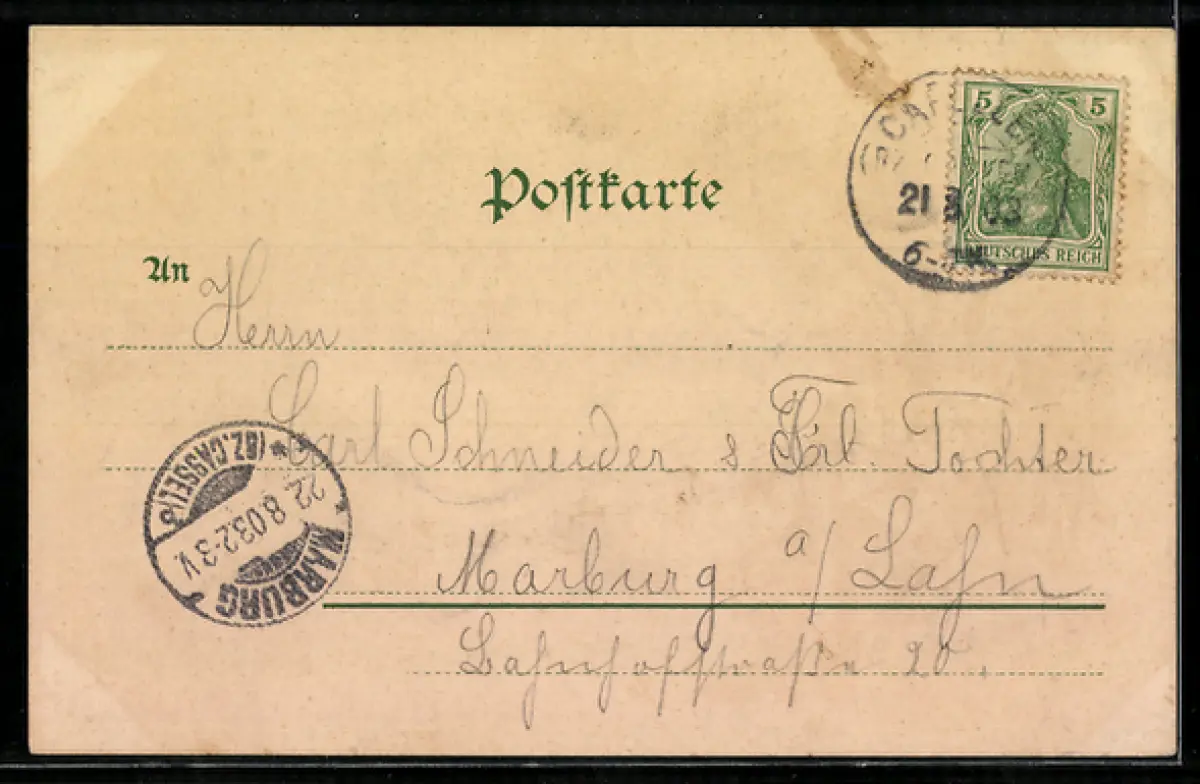 Postkarte
5 5
21 8 03
6-
DEUTSCHES REICH
An
Herrn
Carl Schneider & Frl. Tochter
Marburg a/Lahn
Bahnhofstraße 20.
MARBURG
(BZ. CASSEL)
22. 8. 03. 2-3 V.